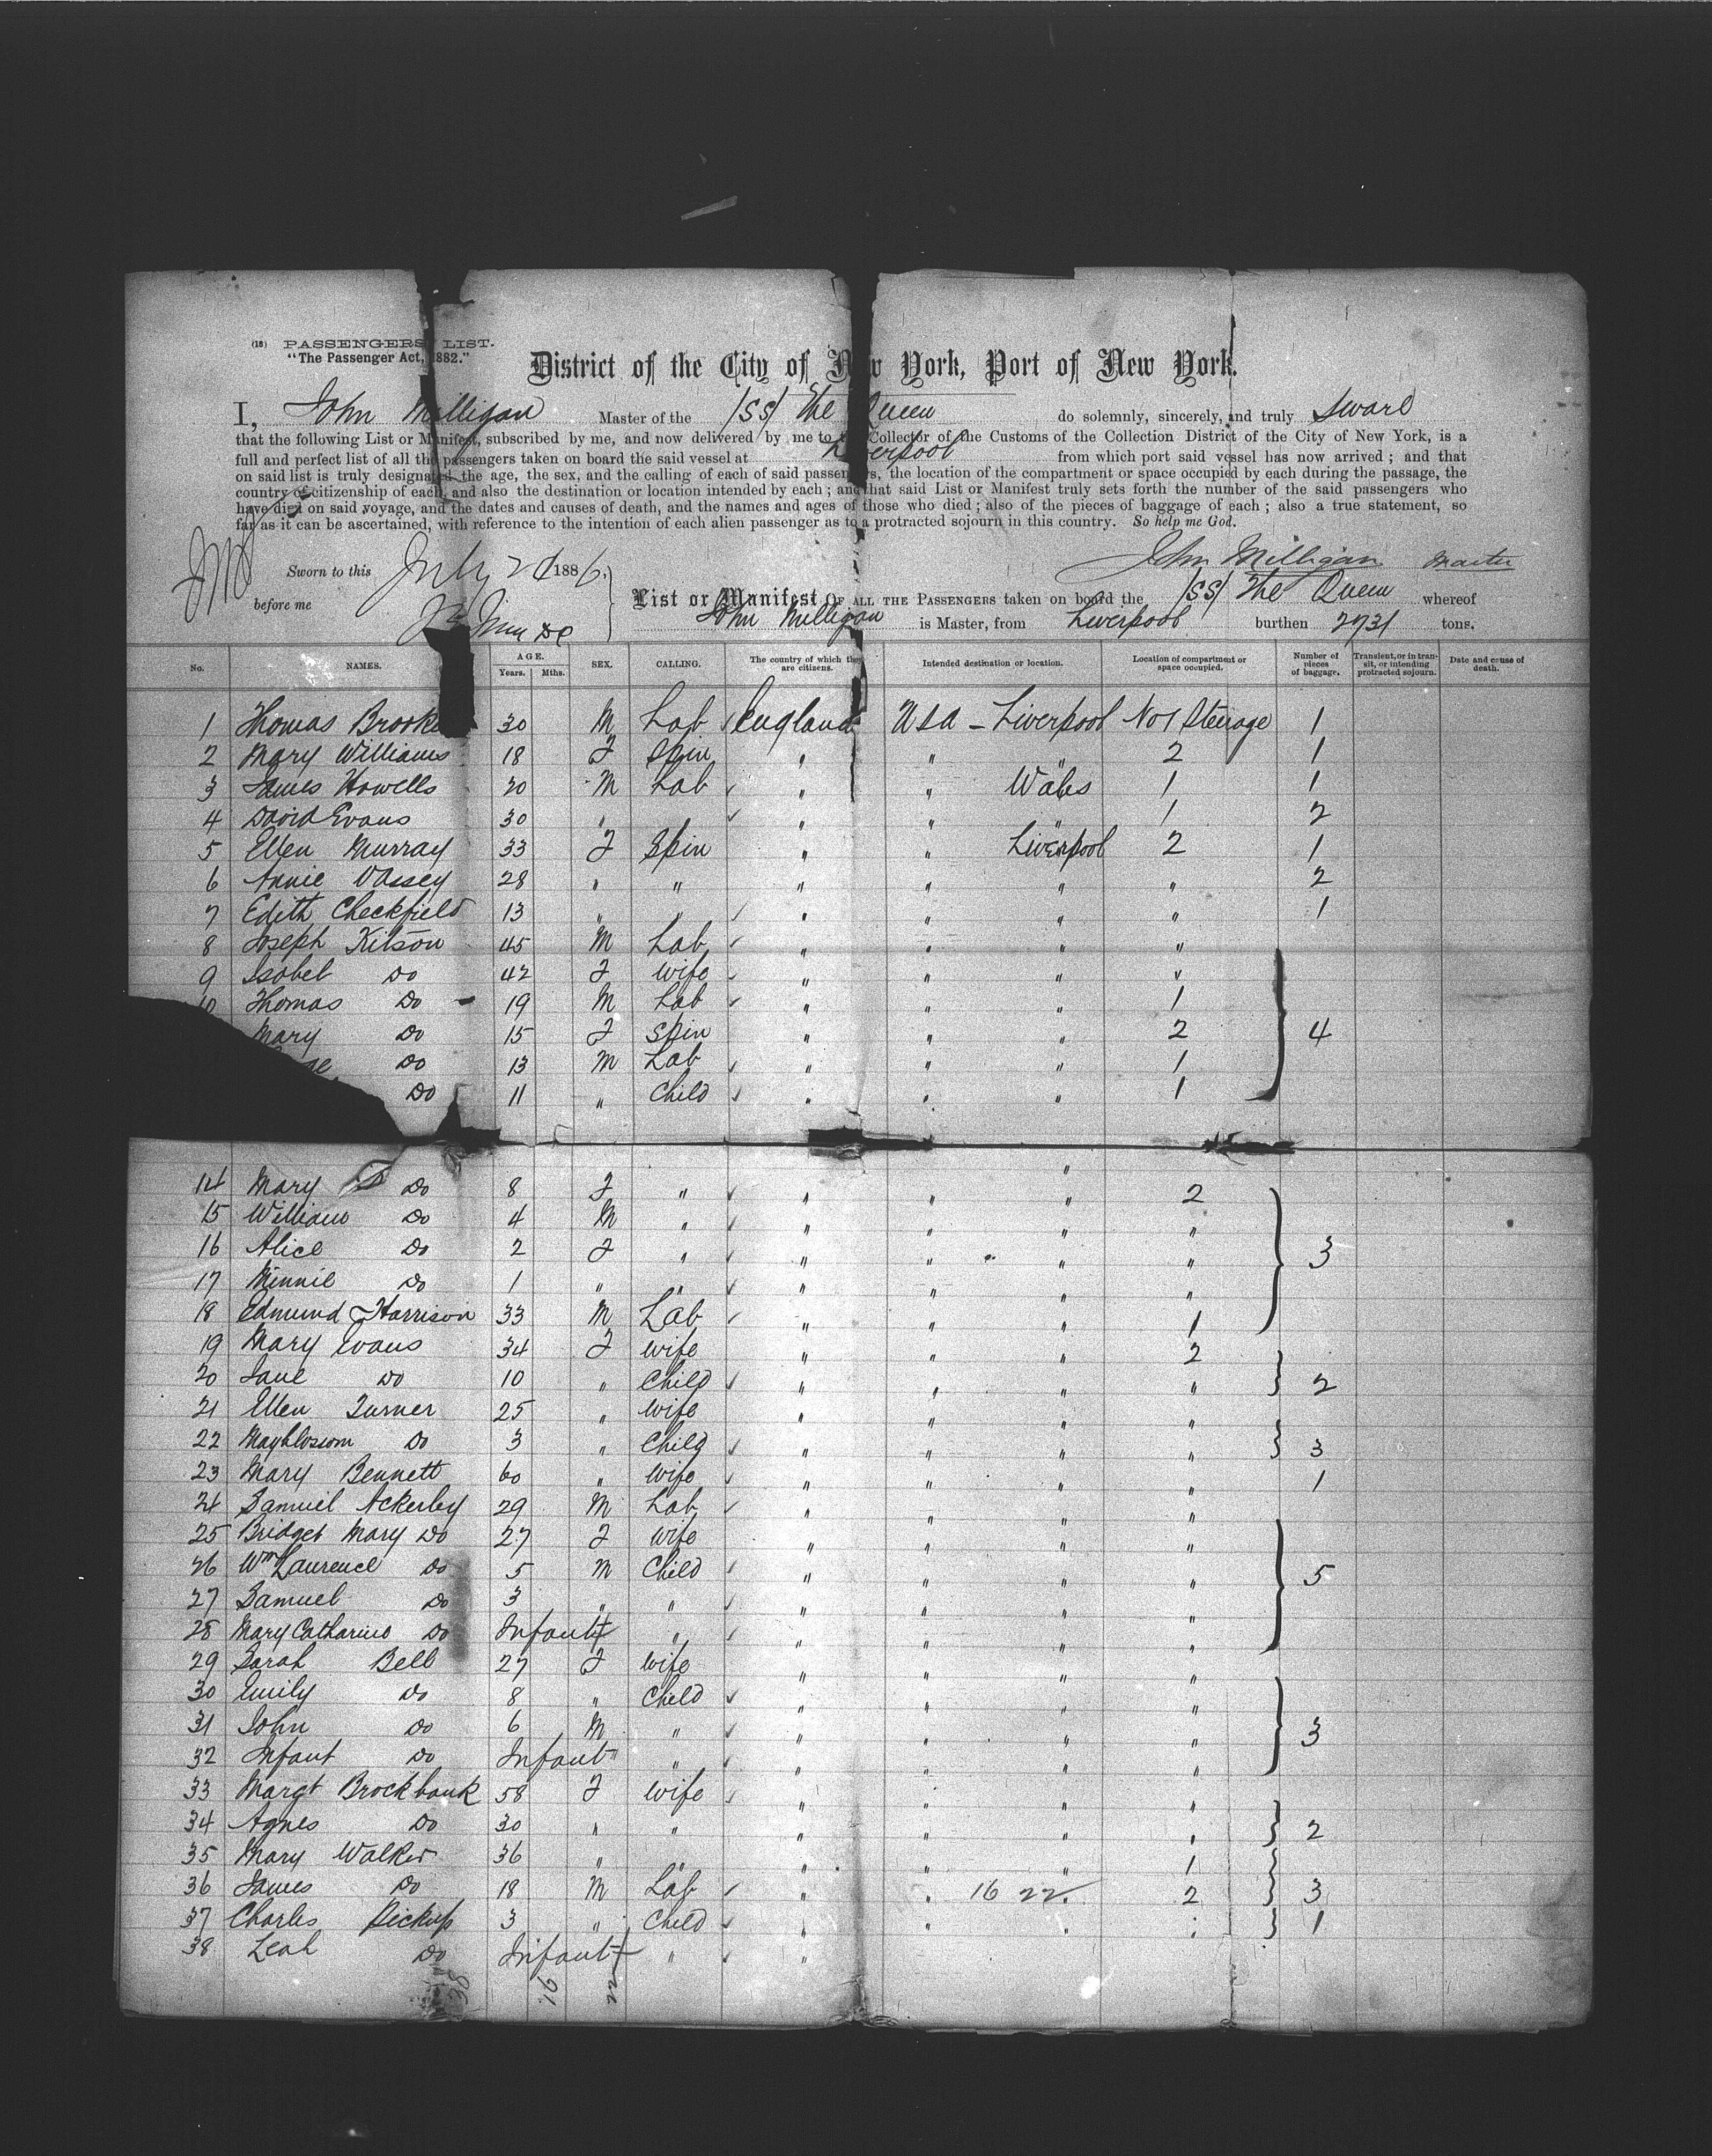 (18) PASSENGERS' LIST.
"The Passenger Act, 1882."
District of the City of New York, Port of New York.
I, John Milligan Master of the /SS/ The Queen do solemnly, sincerely, and truly Swear
that the following List or Manifest, subscribed by me, and now delivered by me to the Collector of the Customs of the Collection District of the City of New York, is a
full and perfect list of all the passengers taken on board the said vessel at Liverpool from which port said vessel has now arrived; and that
on said list is truly designated the age, the sex, and the calling of each of said passengers, the location of the compartment or space occupied by each during the passage, the
country of citizenship of each, and also the destination or location intended by each; and that said List or Manifest truly sets forth the number of the said passengers who
have died on said voyage, and the dates and causes of death, and the names and ages of those who died; also of the pieces of baggage of each; also a true statement, so
far as it can be ascertained, with reference to the intention of each alien passenger as to a protracted sojourn in this country. So help me God.
Sworn to this July 1886. John Milligan Master
before me
List or Manifest OF ALL THE PASSENGERS taken on board the /SS/ The Queen whereof
John Milligan is Master, from Liverpool burthen 2731 tons.
No. NAMES. AGE. Years. Mths. SEX. CALLING. The country of which they are citizens. Intended destination or location. Location of compartment or space occupied. Number of pieces of baggage. Transient, or in transit, or intending protracted sojourn. Date and cause of death.
1 Thomas Brooke 30 M Lab England USA - Liverpool No 1 Steerage 1
2 Mary Williams 18 F Spin " " " 2 1
3 James Howells 20 M Lab " " Wales 1 1
4 David Evans 30 " " " " " 1 2
5 Ellen Murray 33 F Spin " " Liverpool 2 1
6 Annie Vassey 28 " " " " " " 2
7 Edith Checkfield 13 " " " " " " 1
8 Joseph Kitson 45 M Lab " " " "
9 Isobel Do 42 F Wife " " " "
10 Thomas Do 19 M Lab " " " 1
Mary Do 15 F Spin " " " 2 4
Do 13 M Lab " " " 1
Do 11 " Child " " " 1
14 Mary Do 8 F " " " " 2
15 William Do 4 M " " " " "
16 Alice Do 2 F " " " " " 3
17 Minnie Do 1 " " " " " "
18 Edmund Harrison 33 M Lab " " " 1
19 Mary Evans 34 F Wife " " " 2
20 Jane Do 10 " Child " " " " 2
21 Ellen Turner 25 " Wife " " " "
22 Mayblossom Do 3 " Child " " " " 3
23 Mary Bennett 60 " Wife " " " " 1
24 Samuel Ackerley 29 M Lab " " " "
25 Bridget Mary Do 27 F Wife " " " "
26 Wm Laurence Do 5 M Child " " " " 5
27 Samuel Do 3 " " " " " "
28 Mary Catharine Do Infant " " " " "
29 Sarah Bell 27 F Wife " " " "
30 Emily Do 8 " Child " " " "
31 John Do 6 M " " " " " 3
32 Infant Do Infant " " " " " "
33 Margt Brockbank 58 F Wife " " " "
34 Agnes Do 30 " " " " " " 2
35 Mary Walker 36 " " " " " 1
36 James Do 18 M Lab " " 16 22 2 3
37 Charles Pickup 3 " Child " " " " 1
38 Leah Do Infant " "
38 16 22